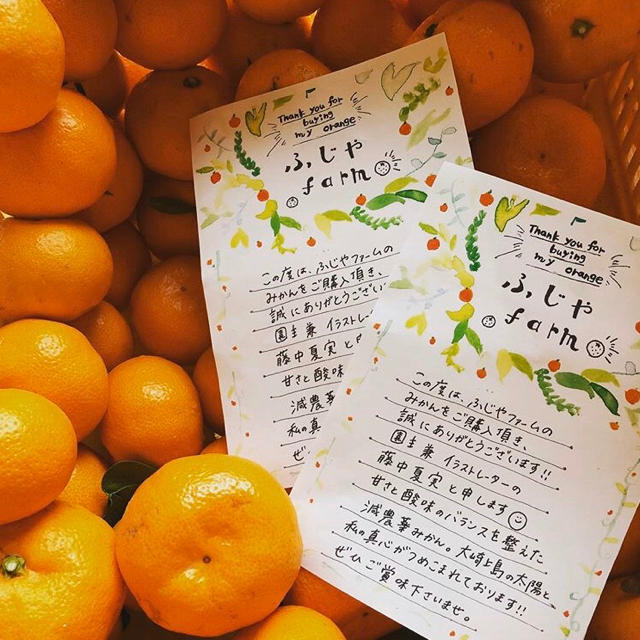 Thank you for
buying
my orange
ふじや
farm
この度は、ふじやファームの
みかんをご購入頂き、
誠にありがとうござい
園主兼 イラストレ
藤中夏実と申
甘さと酸味
減農薬
私の真
ぜ
Thank you for
buying
my orange
ふじや
farm
この度は、ふじやファームの
みかんをご購入頂き、
誠にありがとうございます!!
園主兼 イラストレーターの
藤中夏実と申します
甘さと酸味のバランスを整えた
減農薬みかん。大崎上島の太陽と、
私の真心がつめこまれております!!
ぜひご賞味下さいませ。